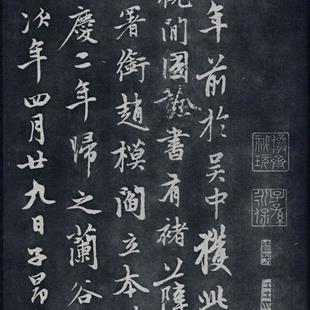 年前於吴中獲此
國詮書有褚
署銜趙模閻立本
慶二年歸之蘭谷
次年四月廿九日子昂
子孫永保